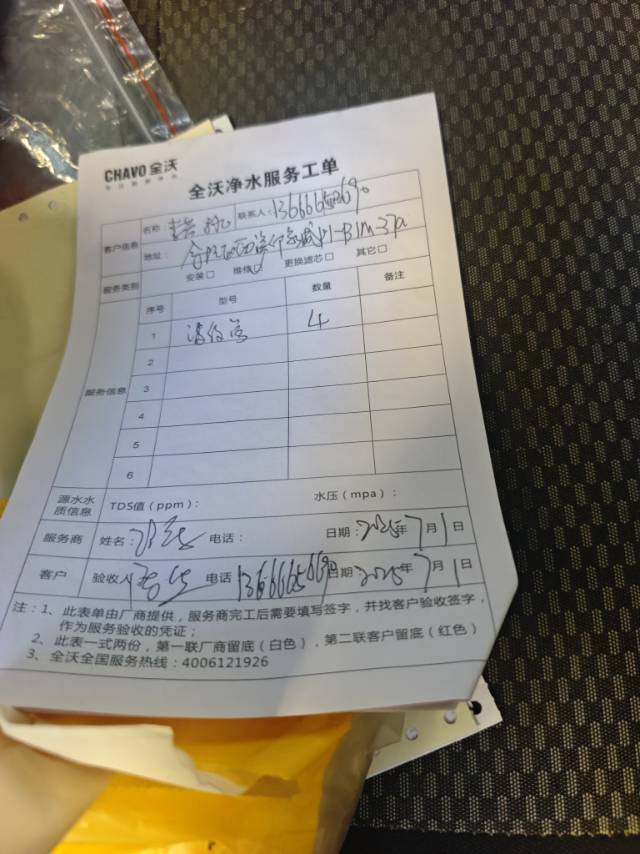 CHAVO 全沃
全沃净水服务工单
客户信息
名称
联系人:
地址:
P1-B1M-37a
服务类别
安装□ 维修□ 更换滤芯□ 其它□
服务信息
序号 型号 数量 备注
1 4
2
3
4
5
6
源水水质信息
TDS值(ppm): 水压(mpa):
服务商 姓名: 电话: 日期: 2025年7月1日
客户 验收人 电话 日期 2025年7月1日
注:1、此表单由厂商提供,服务商完工后需要填写签字,并找客户验收签字,
作为服务验收的凭证;
2、此表一式两份,第一联厂商留底(白色),第二联客户留底(红色)
3、全沃全国服务热线:4006121926